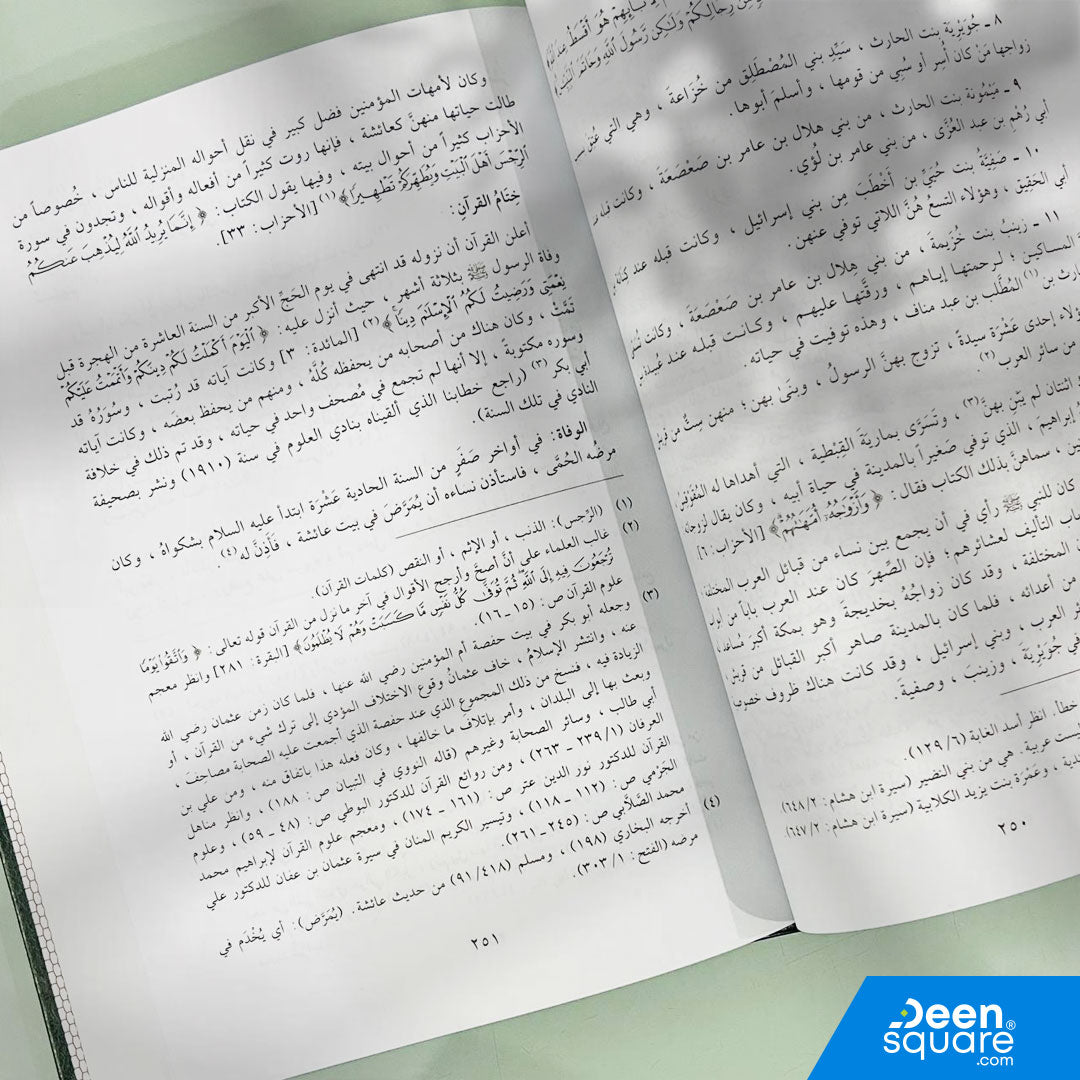 من رجالكم ولكن رسول الله وخاتم النبيين
٨ ـ جُوَيْرِيَة بنت الحارث ، سَيِّدِ بني المُصْطَلِق من خُزَاعةَ ، وهي التي عُتق
زواجها مَنْ كان أُسِر أو سُبِي من قومها ، وأسلمَ أبوها.
٩ ـ مَيْمُونة بنت الحارث ، من بني هلال بن عامر بن صَعْصَعَة ، وكانت قبله
أبي رُهْم بن عبد العُزَّى ، من بني عامر بن لُؤي.
١٠ ـ صَفِيَّةُ بنت حُيَيِّ بن أَخْطَب مِن بني إسرائيل ، وكانت قبله عند كنانة
أبي الحَقِيق ، وهؤلاء التسعُ هُنَّ اللاتي توفي عنهن.
١١ ـ زينبُ بنت خُزَيمةَ ، من بني هِلال بن عامر بن صَعْصَعَةَ ، وكانت
المساكين ؛ لرحمتها إياهم ، ورقَّتها عليهم ، وكانت قبله عند عُبيدة
بن (١) المُطَّلب بن عبد مناف ، وهذه توفيت في حياته.
إحدى عَشْرَة سيدةً ، تزوج بهنَّ الرسولُ ، وبنَى بهن ؛ منهن سِتٌّ من قريش
من سائر العرب (٢).
اثنتان لم يَبْنِ بهنَّ (٣) ، وتَسَرَّى بماريَّةَ القِبْطية ، التي أهداها له المُقَوْقِس
إبراهيمَ ، الذي توفي صَغيراً بالمدينة في حياة أبيه ، وكان يقال لزوجاته
، سماهنَّ بذلك الكتاب فقال : ﴿ وَأَزْوَٰجُهُۥٓ أُمَّهَـٰتُهُمْ ﴾ [الأحزاب : ٦]
كان للنبي ﷺ رأي في أن يجمع بين نساء من قبائل العرب المختلفة
التأليف لعشائرهم ؛ فإن الصِّهرَ كان عند العرب باباً من أبواب
المختلفة ، وقد كان زواجُهُ بخديجةَ وهو بمكة أكبرَ مُساعد
من أعدائه ، فلما كان بالمدينة صاهر أكبر القبائل من قريش
العرب ، وبني إسرائيل ، وقد كانت هناك ظروف خصوصية
في جُوَيْرِيَة ، وزينبَ ، وصفيةَ.
خطأ. انظر أسد الغابة (٦/ ١٢٩).
ليست عربية. هي من بني النضير (سيرة ابن هشام : ٢/ ٦٤٨)
، وعَمْرَة بنت يزيد الكلابية (سيرة ابن هشام : ٢/ ٦٤٧)
٢٥٠
وكان لأمهات المؤمنين فضل كبير في نقل أحواله المنزلية للناس ، خُصوصاً من
طالت حياتها منهنَّ كعائشة ، فإنها روت كثيراً من أفعاله وأقواله ، وتجدون في سورة
الأحزاب كثيراً من أحوال بيته ، وفيها يقول الكتاب : ﴿ إِنَّمَا يُرِيدُ ٱللَّهُ لِيُذْهِبَ عَنكُمُ
ٱلرِّجْسَ أَهْلَ ٱلْبَيْتِ وَيُطَهِّرَكُمْ تَطْهِيرًا ﴾ (١) [الأحزاب : ٣٣].
خِتَامُ القرآنِ :
أعلن القرآن أن نزوله قد انتهى في يوم الحَجِّ الأكبر من السنة العاشرة من الهجرة قبل
وفاة الرسول ﷺ بثلاثة أشهر ، حيث أنزل عليه : ﴿ ٱلْيَوْمَ أَكْمَلْتُ لَكُمْ دِينَكُمْ وَأَتْمَمْتُ عَلَيْكُمْ
نِعْمَتِى وَرَضِيتُ لَكُمُ ٱلْإِسْلَـٰمَ دِينًا ﴾ (٢) [المائدة : ٣] وكانت آياته قد رُتبت ، وسُوَرُهُ قد
تَمَّتْ ، وكان هناك من أصحابه من يحفظه كُلَّهُ ، ومنهم من يحفظ بعضَه ، وكانت آياته
وسوره مكتوبةً ، إلا أنها لم تجمع في مُصحف واحد في حياته ، وقد تم ذلك في خلافة
أبي بكر (٣) (راجع خطابنا الذي ألقيناه بنادي العلوم في سنة (١٩١٠) ونشر بصحيفة
النادي في تلك السنة).
الوفاة : في أواخر صَفَرٍ من السنة الحادية عَشْرَة ابتدأ عليه السلام بشكواهُ ، وكان
مرضُه الحُمَّى ، فاستأذن نساءه أن يُمَرَّضَ في بيت عائشة ، فَأَذِنَّ له (٤).
(١) (الرِّجس) : الذنب ، أو الإثم ، أو النقص (كلمات القرآن).
(٢) غالب العلماء على أنَّ أصحَّ وأرجح الأقوال في آخر ما نزل من القرآن قوله تعالى : ﴿ وَٱتَّقُوا۟ يَوْمًا
تُرْجَعُونَ فِيهِ إِلَى ٱللَّهِ ثُمَّ تُوَفَّىٰ كُلُّ نَفْسٍ مَّا كَسَبَتْ وَهُمْ لَا يُظْلَمُونَ ﴾ [البقرة : ٢٨١] وانظر معجم
علوم القرآن ص : (١٥ ـ ١٦).
(٣) وجعله أبو بكر في بيت حفصة أم المؤمنين رضي الله عنها ، فلما كان زمن عثمان رضي الله
عنه ، وانتشر الإسلامُ ، خاف عثمانُ وقوع الاختلاف المؤدي إلى ترك شيء من القرآن ، أو
الزيادة فيه ، فنسخ من ذلك المجموع الذي عند حفصة الذي أجمعت عليه الصحابة مصاحفَ ،
وبعث بها إلى البلدان ، وأمر بإتلاف ما خالفها ، وكان فعله هذا باتفاق منه ، ومن علي بن
أبي طالب ، وسائر الصحابة وغيرهم (قاله النووي في التبيان ص : ١٨٨) ، وانظر مناهل
العرفان (١/ ٢٣٩ ـ ٢٦٣) ، ومن روائع القرآن للدكتور البوطي ص : (٤٨ ـ ٥٩) ، وعلوم
القرآن للدكتور نور الدين عتر ص : (١٦١ ـ ١٧٤) ، ومعجم علوم القرآن لإبراهيم محمد
الجَرْمي ص : (١١٢ ـ ١١٨) ، وتيسير الكريم المنان في سيرة عثمان بن عفان للدكتور علي
محمد الصَّلاَّبي ص : (٢٤٥ ـ ٢٦١).
(٤) أخرجه البخاري (١٩٨) ، ومسلم (٤١٨/ ٩١) من حديث عائشة. (يُمَرَّض) : أي يُخْدَم في
مرضه (الفتح : ١/ ٣٠٣).
٢٥١
Deen
square®
.com